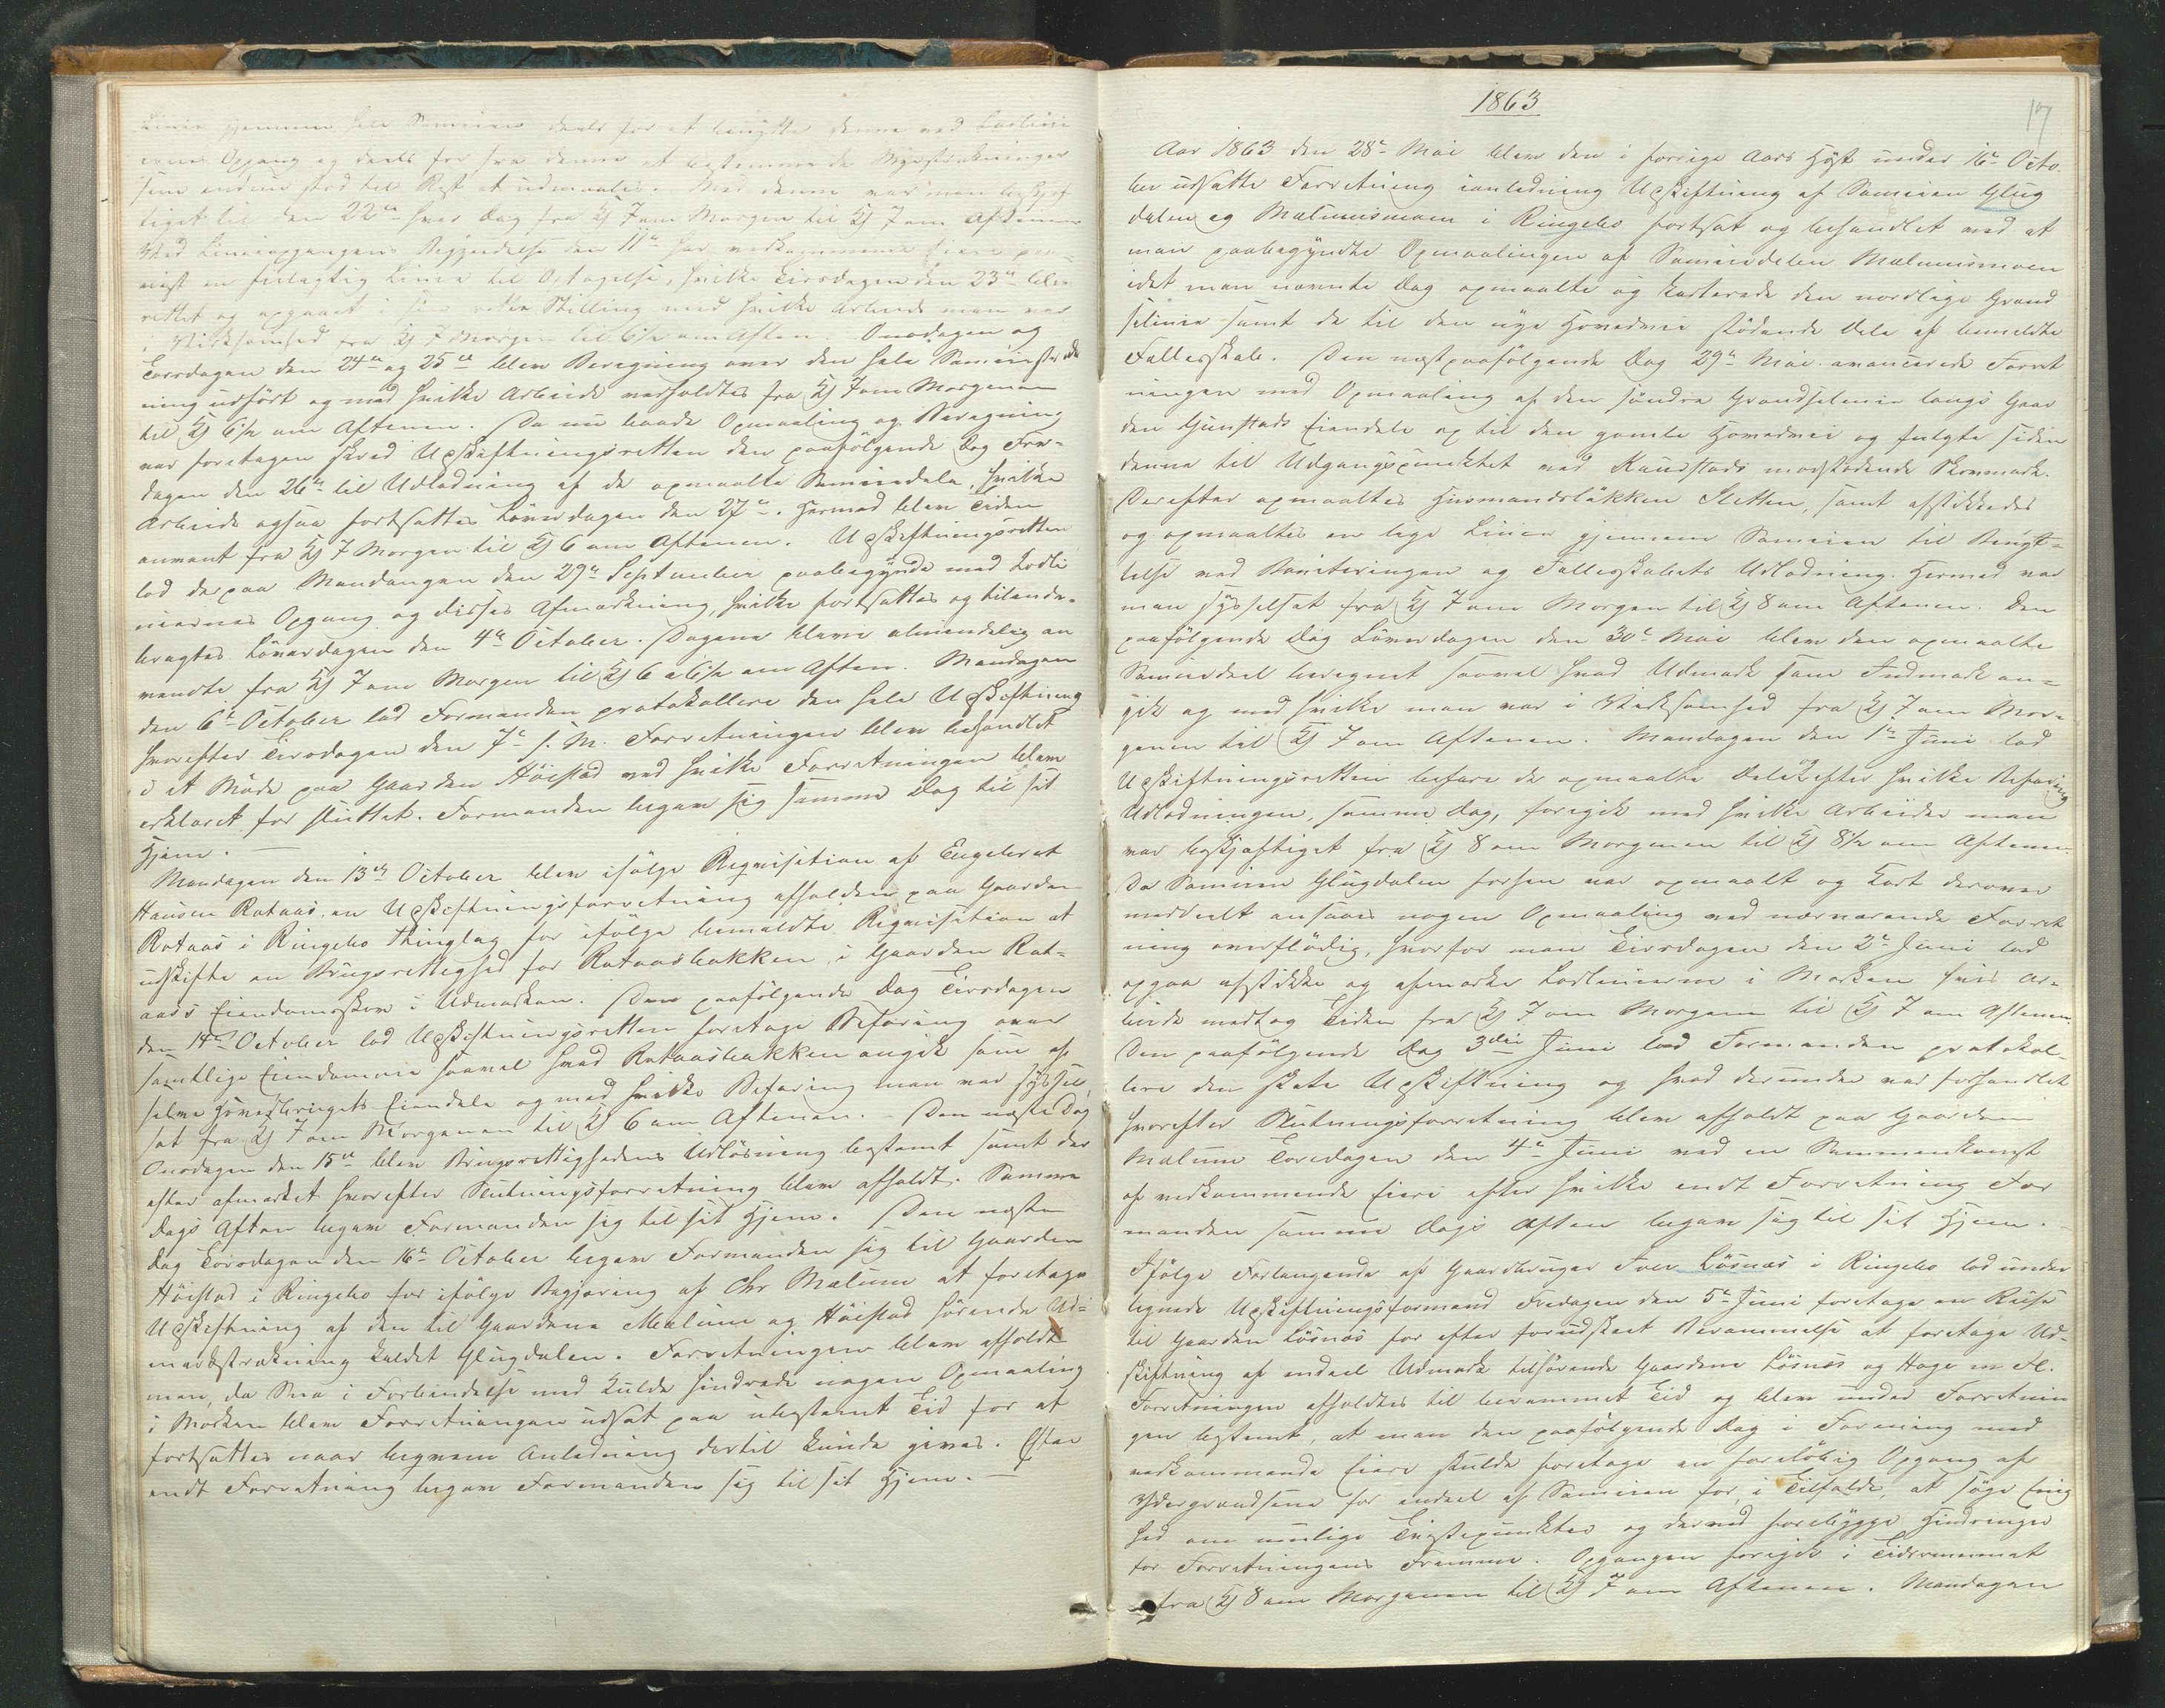 Linie gjennem hele Sameien deels for at benytte denne ved Lodlini
ernes Opgang og deels for fra denne at bestemme de Myrstrækninger
som endnu stod til Rest at udmaales. Med denne var man beskjæf
tiget til den 22de hver Dag fra Kl 7 om Morgen til Kl 7 om Aftenen
Ved Linieopgangens Begyndelse den 11te har vedkommende Eiere paa¬
viist en feilagtig Linie til Optagelse, hvilke Tirsdagen den 23de blev
rettet og opgaaet i sin rette Stilling med hvilke Arbeide man var
i Virksomhed fra Kl 7 Morgen til 6½ om Aften. Onsdagen og
Torsdagen den 24de og 25de blev Beregning over den hele Sameiestræk
ning udført og med hvilke Arbeide vedholdtes fra Kl 7 om Morgenen
til Kl 6½ om Aftenen. Da nu baade Opmaaling og Beregning
var foretagen skred Udskiftningsretten den paafølgende Dag Fre¬
dagen den 26de til Udlodning af de opmaalte Sameiedele, hvilke
Arbeide ogsaa fortsattes Løverdagen den 27de. Hermed blev Tiden
anvent fra Kl 7 Morgen til Kl 6 om Aftenen. Udskiftningsretten
lod derpaa Mandangen den 29de September paabegynde med Lodli
niernes Opgang og disses Afmærkning, hvilke fortsattes og tilende¬
bragtes Løverdagen den 4de October. Dagene bleve almindelig an
vendte fra Kl 7 om Morgen til Kl 6 a 6½ om Aften. Mandagen
den 6te October lod Formanden protokollere den hele Udskiftning
hvorefter Tirsdagen den 7de s. M. Forretningen blev behandlet
i et Møde paa Gaarden Høistad ved hvilke Forretningen blev
erklæret for sluttet. Formanden begav sig samme Dag til sit
Hjem. —
Mandagen den 13de October blev ifølge Reqvisition af Engebret
Hansen Rotaas, en Udskiftningsforretning afholden paa Gaarden
Rotaas i Ringebo Thinglag for ifølge bemeldte Reqvisition at
udskifte en Brugsrettighed for Rotaasbakken, i Gaarden Rot¬
aass Eiendomsskov i Udmarken. Den paafølgende Dag Tirsdagen
den 14de October lod Udskiftningsretten foretage Befaring over
samtlige Eiendomme saavel hvad Rotaasbakken angik som af
selve Hovedbrugets Eiendele og med hvilke Befaring man var syssel
sat fra Kl 7 om Morgenen til Kl 6 om Aftenen. Den næste Dag
Onsdagen den 15de blev Brugsrettighedens Udløsning bestemt samt der
efter afmærket hvorefter Slutningsforretning blev afholdt. Samme
Dags Aften begav Formanden sig til sit Hjem. Den næste
Dag Torsdagen den 16de October begav Formanden sig til Gaarden
Høistad i Ringebo for ifølge Begjæring af Chr Mælum at foretage
Udskiftning af den til Gaardene Mælum og Høistad hørende Ud¬
markstrækning kaldet Glugdalen. Forretningen blev afholdt
men, da Snø i Forbindelse med Kulde hindrede nogen Opmaaling
i Marken blev Forretningen udsat paa ubestemt Tid for at
fortsættes naar beqvem Anledning dertil kunde gives. Efter
endt Forretning begav Formanden sig til sit Hjem. —
1863
17
Aar 1863 den 28de Mai blev den i forrige Aars Høst under 16de Octo
ber udsatte Forretning ianledning Udskiftning af Sameien Glug
dalen og Mælumsmoen i Ringebo fortsat og behandlet med at
man paabegyndte Opmaalingen af Sameiedelen Mælumsmoen
idet man nævnte Dag opmaalte og karterede den nordlige Grænd
selinie samt de til den nye Hovedvei stødende Dele af bemeldte
Fællesskab. Den næstpaafølgende Dag 29de Mai avancerede Forret
ningen med Opmaaling af den søndre Grændselinie langs Gaar
den Gunstads Eiendele op til den gamle Hovedvei og fulgte siden
denne til Udgangspunktet ved Randstads modstødende Skovmark.
Derefter opmaaltes Husmandsløkken Sletten, samt afstikkedes
og opmaaltes en lige Linie gjennem Sameien til Benyt¬
telse ved Boniteringen og Fællesskabets Udlodning. Hermed var
man sysselsat fra Kl 7 om Morgen til Kl 8 om Aftenen. Den
paafølgende Dag Løverdagen den 30te Mai blev den opmaalte
Sameiedeel beregnet saavel hvad Udmark som Indmark an¬
gik og med hvilke man var i Virksomhed fra Kl 7 om Mor¬
genen til Kl 7 om Aftenen. Mandagen den 1ste Juni lod
Udskiftningsretten befare de opmaalte Dele efter hvilke Befaring
Udlodningen, samme Dag, foregik med hvilke Arbeider man
var beskjæftiget fra Kl 8 om Morgenen til Kl 8½ om Aftenen.
Da Sameien Glugdalen forhen var opmaalt og Kart derover
meddeelt ansaaes nogen Opmaaling ved nærværende Forret
ning overflødig, hvorfor man Tirsdagen den 2de Juni lod
opgaa afstikke og afmærke Lodlinierne i Marken hvis Ar¬
beide medtog Tiden fra Kl 7 om Morgenen til Kl 7 om Aftenen.
Den paafølgende Dag 3die Juni lod Formanden protokol¬
lere den skete Udskiftning og hvad derunder var forhandlet
hvorefter Slutningsforretning blev afholdt paa Gaarden
Mælum Torsdagen den 4de Juni ved en Sammenkomst
af vedkommende Eiere efter hvilke endt Forretning For
manden samme Dags Aften begav sig til sit Hjem.
Ifølge Forlangende af Gaardbruger Iver Løsnæs i Ringebo lod under
tegnede Udskiftningsformand Fredagen den 5te Juni foretage en Reise
til Gaarden Løsnæs for efter forudskeet Berammelse at foretage Ud¬
skiftning af endeel Udmark tilhørende Gaardene Løsnæs og Hage m. Fl.
Forretningen afholdtes til berammet Tid og blev under Forretnin
gen bestemt, at man den paafølgende Dag i Forening med
vedkommende Eiere skulde foretage en foreløbig Opgang af
Ydergrændsene for endeel af Sameien for, i Tilfælde, at søge Enig
hed om mulige Tvistepunkter og derved forebygge Hindringer
for Forretningens Fremme. Opgangen foregik i Tidsrummet
fra Kl 8 om Morgenen til Kl 7 om Aftenen. Mandagen